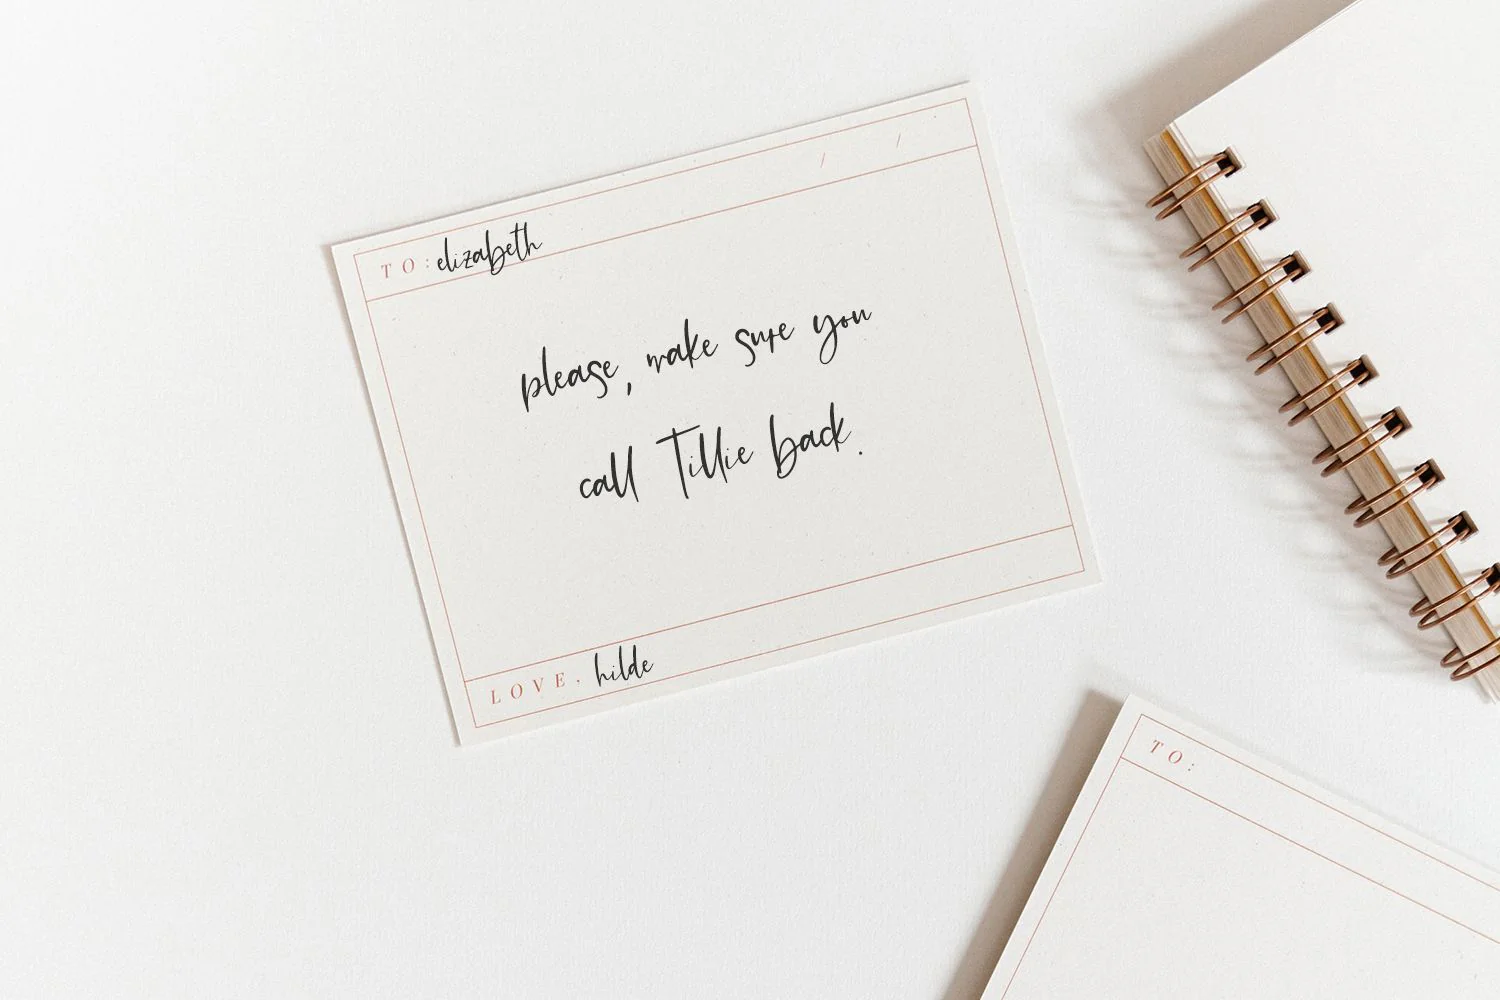 TO: elizabeth
/ /
please, make sure you
call Tillie back.
LOVE, hilde
TO: